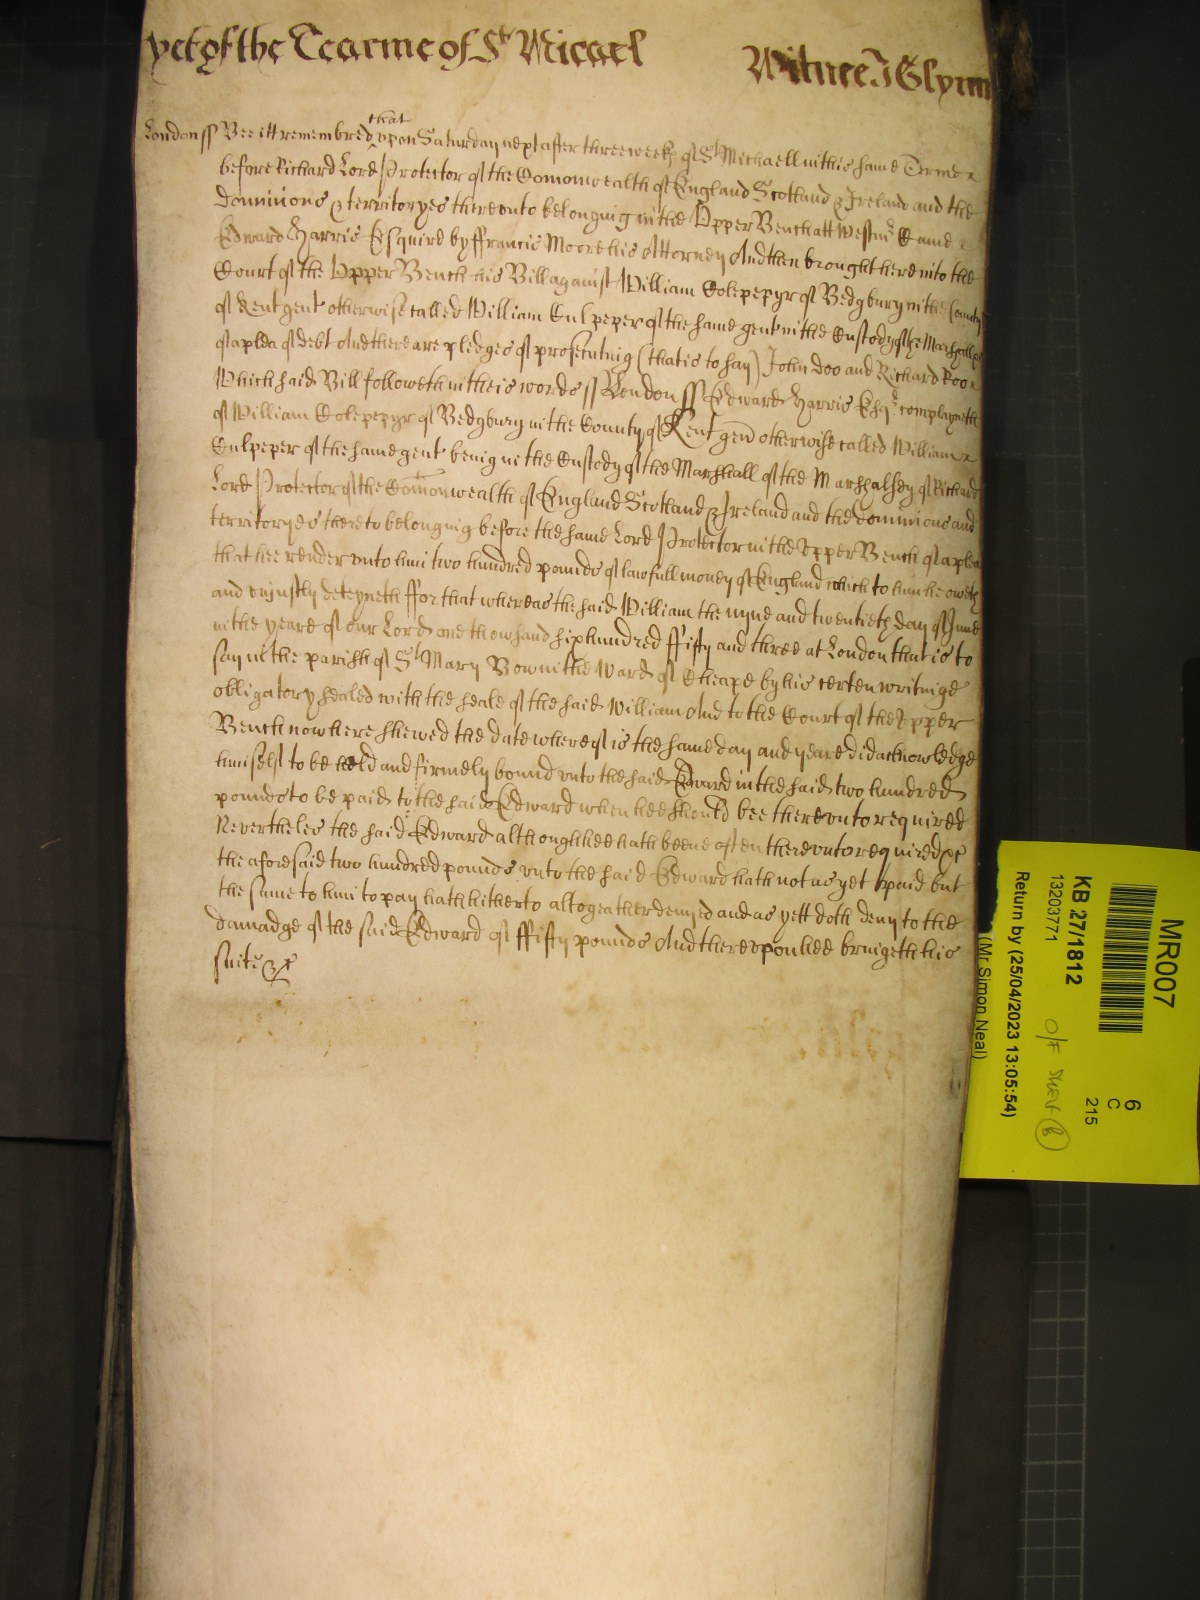 yet of the Tearme of St Micael Witnes J Glynn
that
London ss Bee itt remembred upon Saturday next after three weeks of St Michaell in this same Terme
before Richard Lord Protector of the Comonwealth of England Scotland & Ireland and the
dominions & territoryes thereunto belonging in the Upper Bench att Westmr Came
Edward Harris Esquire by ffrancis Moore his Attorney And then brought here into the
Court of the Upper Bench his Bill against William Colepepyr of Bedgbury in the County
of Kent gent otherwise called William Culpeper of the same gent in the Custody of the Marshall &c
of a plea of debt And there are pledges of prosecuting (that is to say) John Doo and Richard Roo
Which said Bill followeth in theis words ss London ss Edward Harris Esqr complayneth
of William Colepepyr of Bedgbury in the County of Kent gen otherwise called William
Culpeper of the same gent being in the Custody of the Marshall of the Marshalsey of Richard
Lord Protector of the Comonwealth of England Scotland & Ireland and the dominions and
territoryes thereto belonging before the same Lord Protector in the Upper Bench of a plea
that hee render unto him two hundred pounds of lawfull money of England which to him he oweth
and unjustly deteyneth ffor that whereas the said William the nyne and twentieth day of June
in the yeare of our Lord one thowsand six hundred ffifty and three at London that is to
say in the parish of St Mary Bow in the Ward of Cheape by his certen writinge
obligatory sealed with the seale of the said William And to the Court of the Upper
Bench now here shewed the date whereof is the same day and yeare did acknowledge
himselft to be held and firmely bound unto the said Edward in the said two hundred
pounds to be paid to the said Edward when hee should bee thereunto required
Nevertheles the said Edward although hee hath beene often thereunto required &c
the aforesaid two hundred pounds unto the said Edward hath not as yet paid but
the same to him to pay hath hitherto altogeather denyed and as yett doth deny to the
damadge of the said Edward of ffifty pounds And thereupon hee bringeth his
suite &c
MR007
6
C
215
KB 27/1812
13203771
O/F Sheet (B)
Return by (25/04/2023 13:05:54)
(Mr Simon Neal)